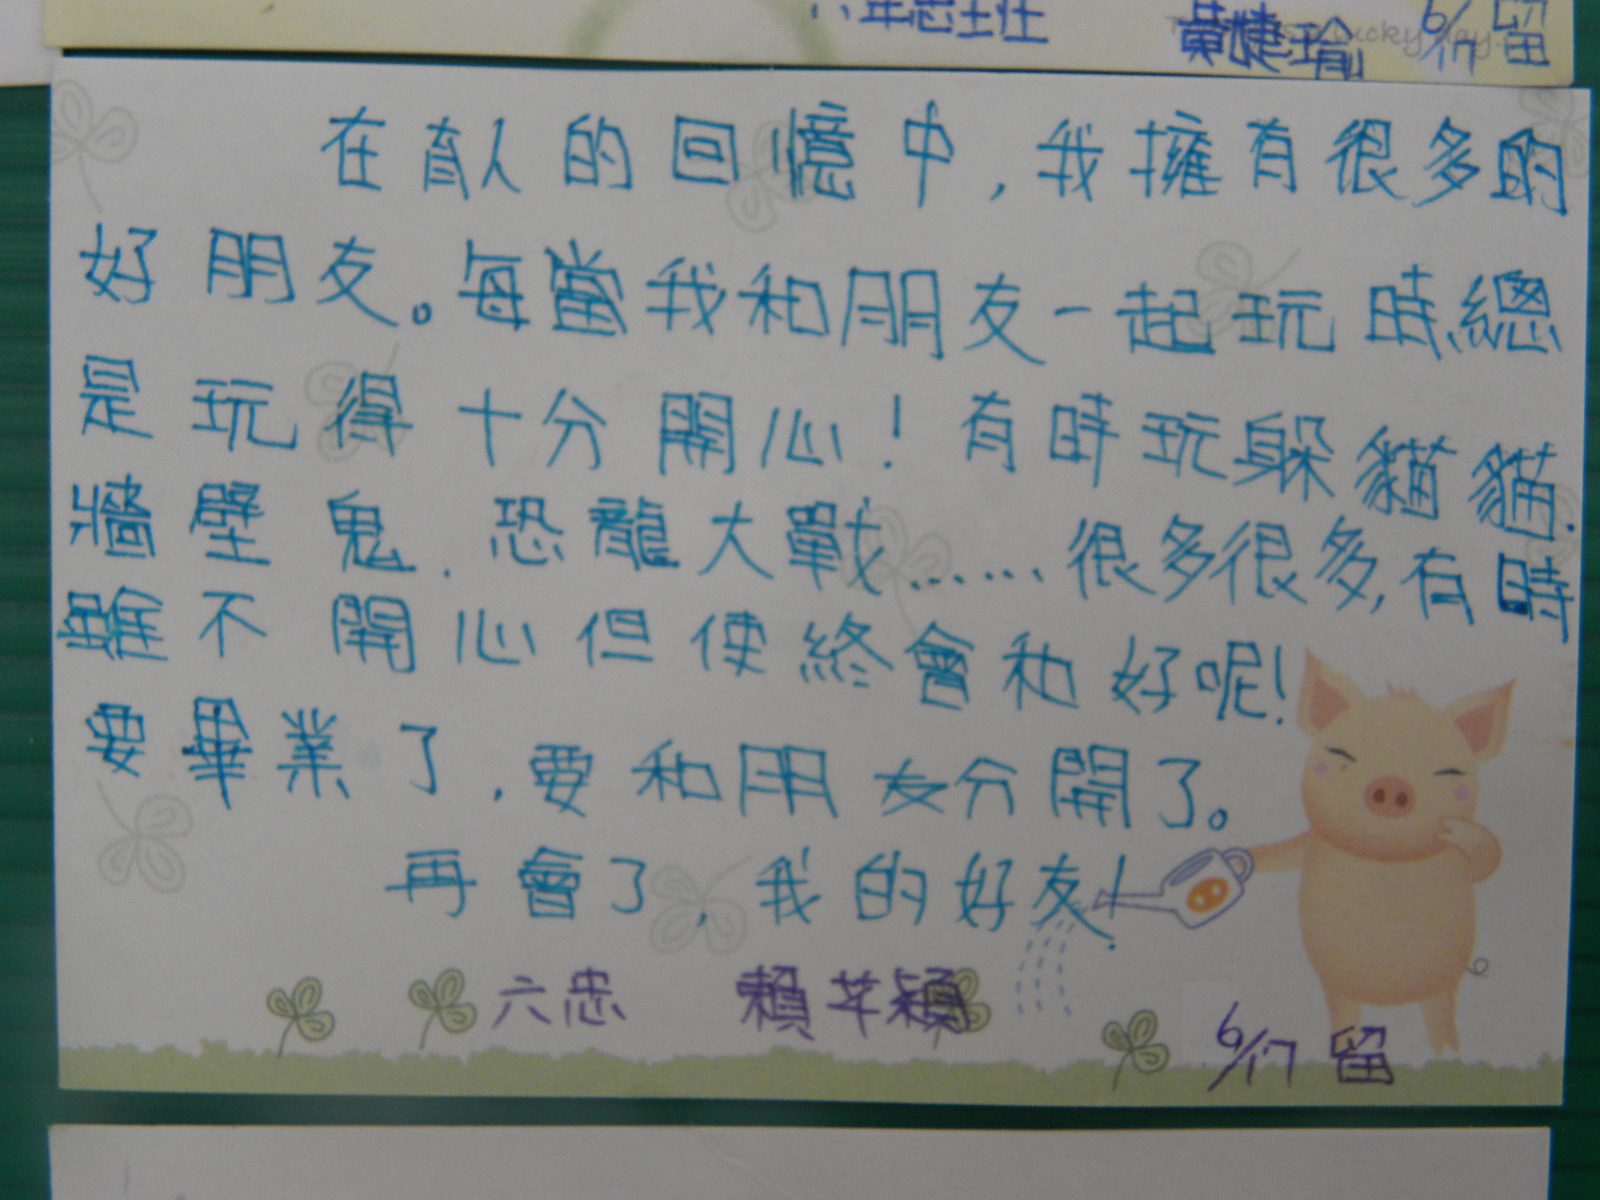 六年忠班 黃婕瑜 6/17 留
在育人的回憶中,我擁有很多的
好朋友。每當我和朋友一起玩時總
是玩得十分開心!有時玩躲貓貓.
牆壁鬼.恐龍大戰……很多很多,有時
雖不開心但使終會和好呢!
要畢業了.要和朋友分開了。
再會了,我的好友!
六忠 賴芊穎
6/17 留